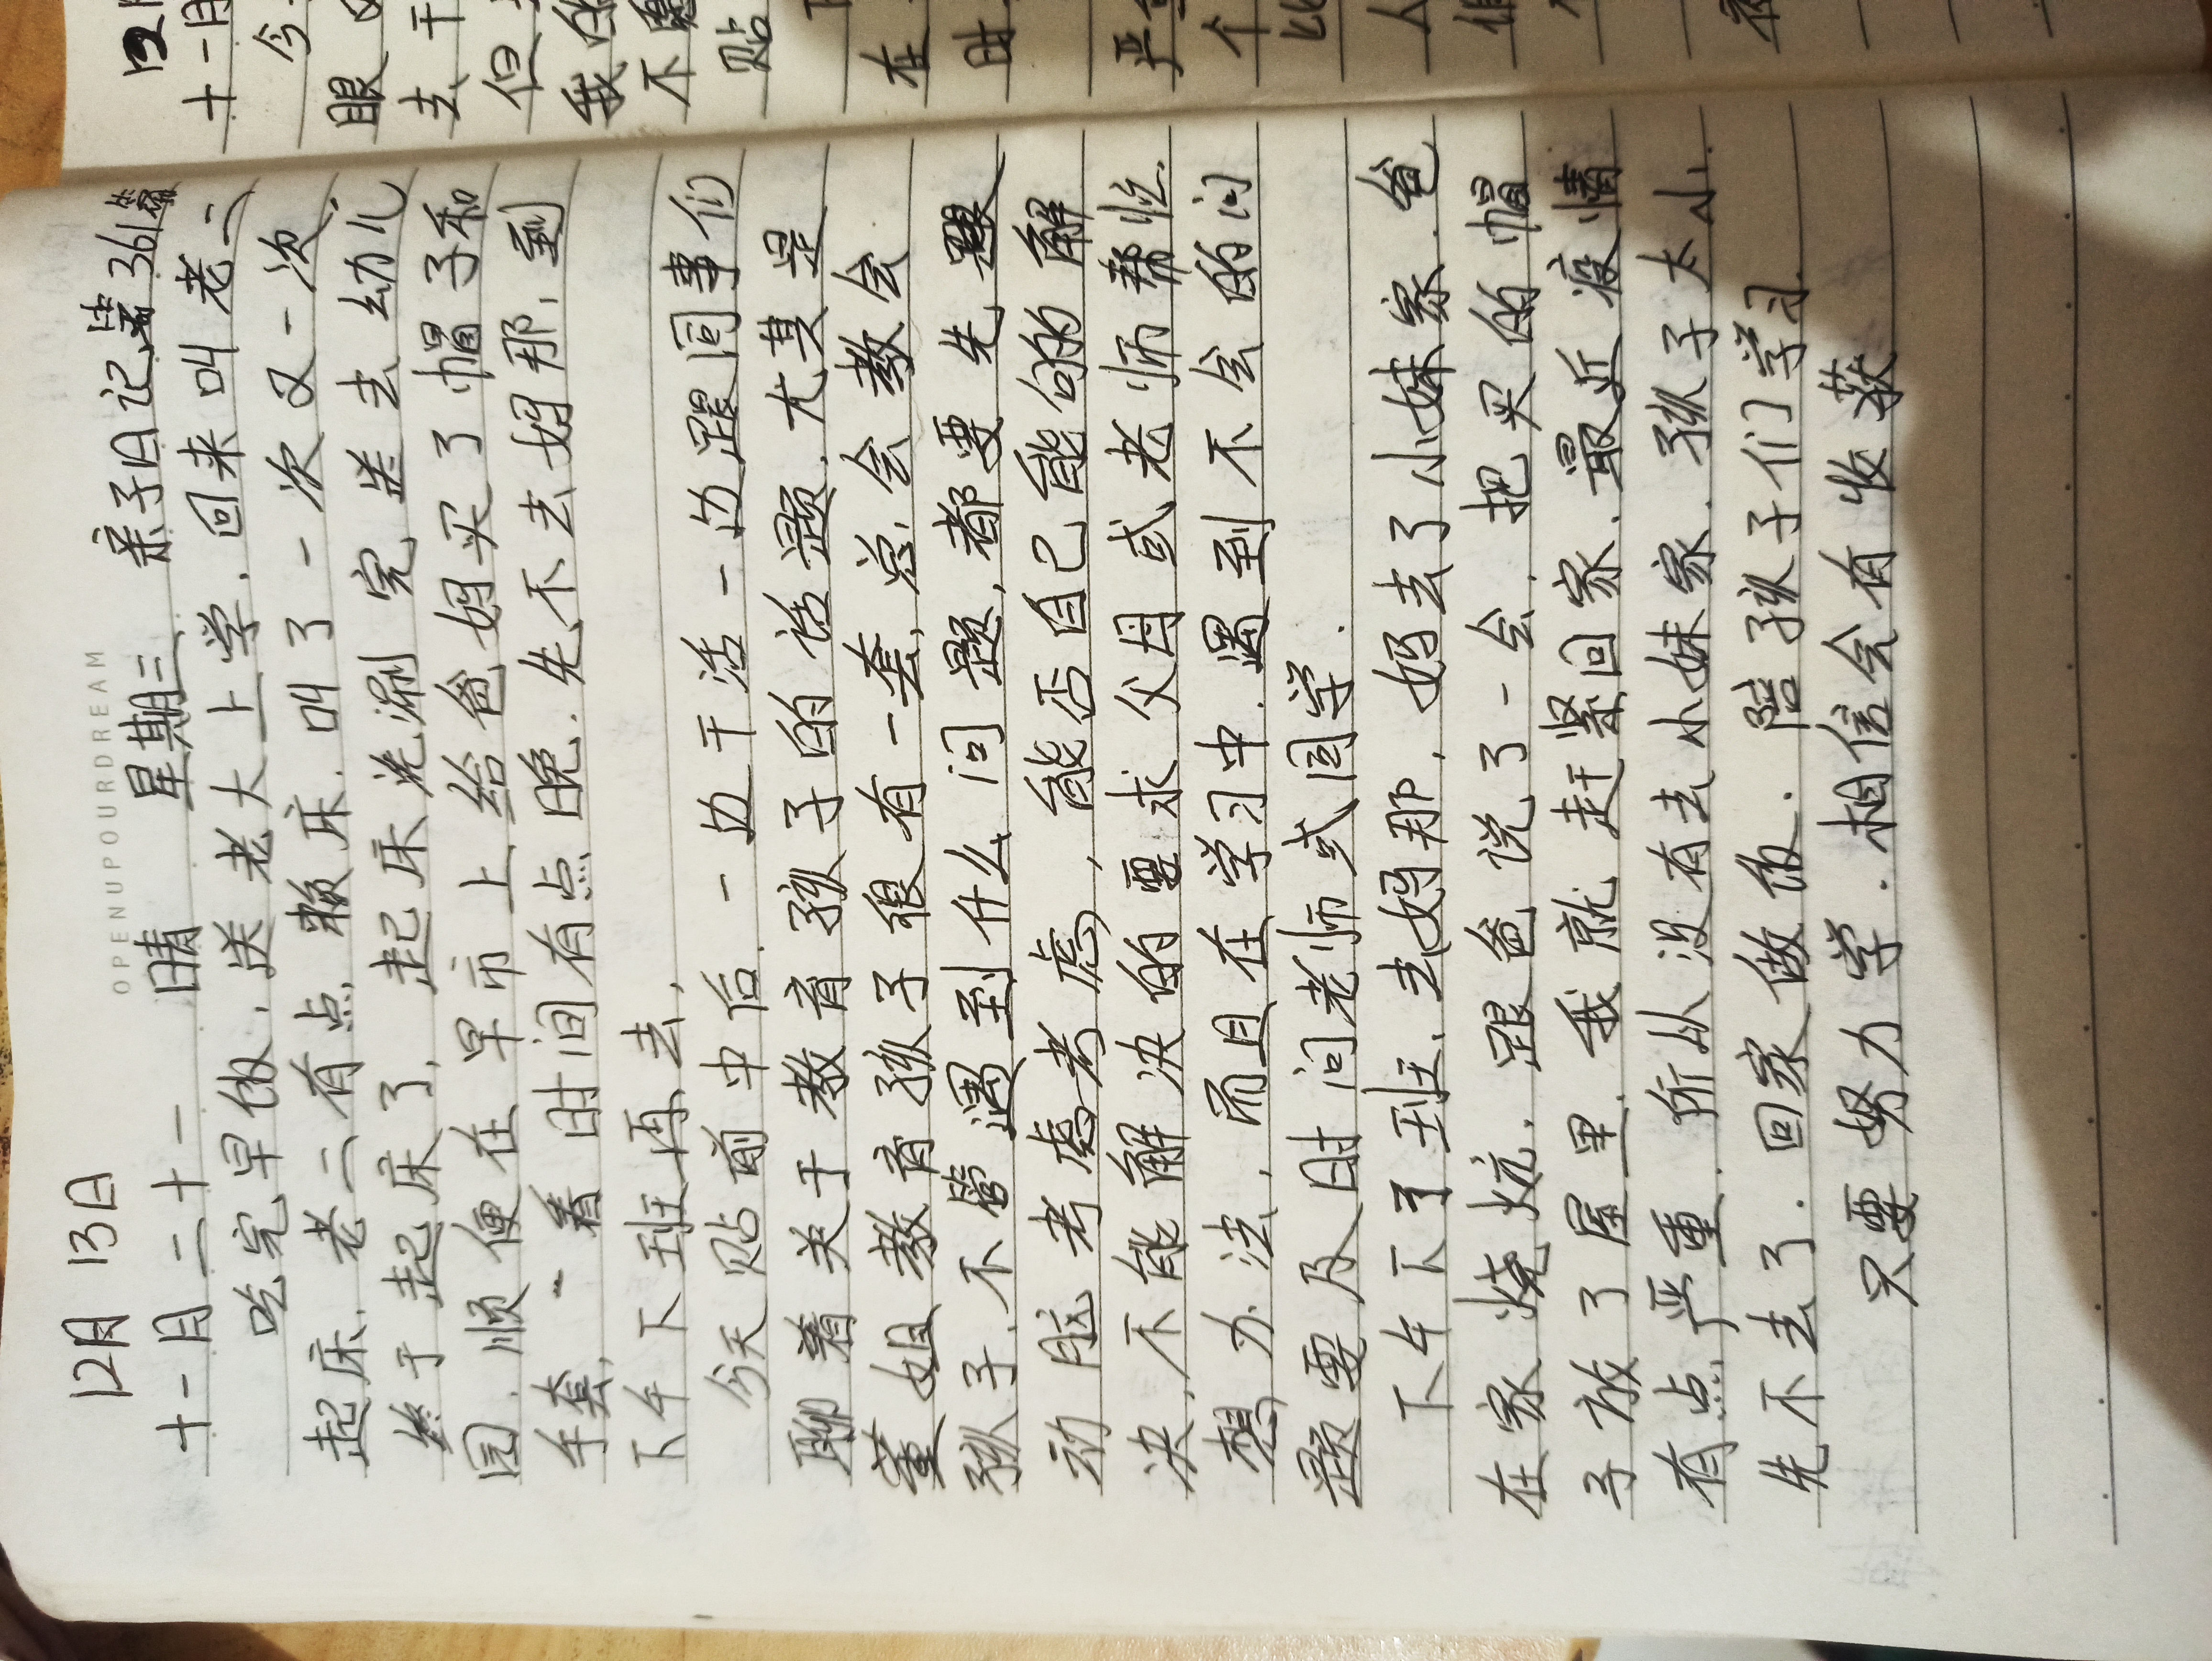 OPENUPOURDREAM
12月 13日
十一月二十一 晴 星期三 亲子日记第361篇
吃完早饭.送老大上学.回来叫老二
起床.老二有点赖床.叫了一次又一次,
终于起床了,起床洗涮完送去幼儿
园.顺便在早市上给爸妈买了帽子和
手套,一看时间有点晚.先不去妈那,到
下午下班再去,
今天贴前中后.一边干活一边跟同事们
聊着关于教育孩子的话题.尤其是
董姐教育孩子很有一套,总会教会
孩子.不管遇到什么问题,都要先
动脑考虑考虑,能否自己能的解
决,不能解决的要求父母或老师帮忙.
想办法,而且在学习中.遇到不会的问
题要及时问老师或同学.
下午下了班.去妈妈那,妈去了小妹家.爸
在家烧炕.跟爸说了一会.把买的帽
子放了屋里.我就赶紧回家.最近疫情
有点严重.所从没有去小妹家.孩子太小.
先不去了.回家做饭.陪孩子们学习.
只要努力学.相信会有收获
12月
十一月
今
眼
去干
但
我的
不
贴
在
时
严
个
比
人